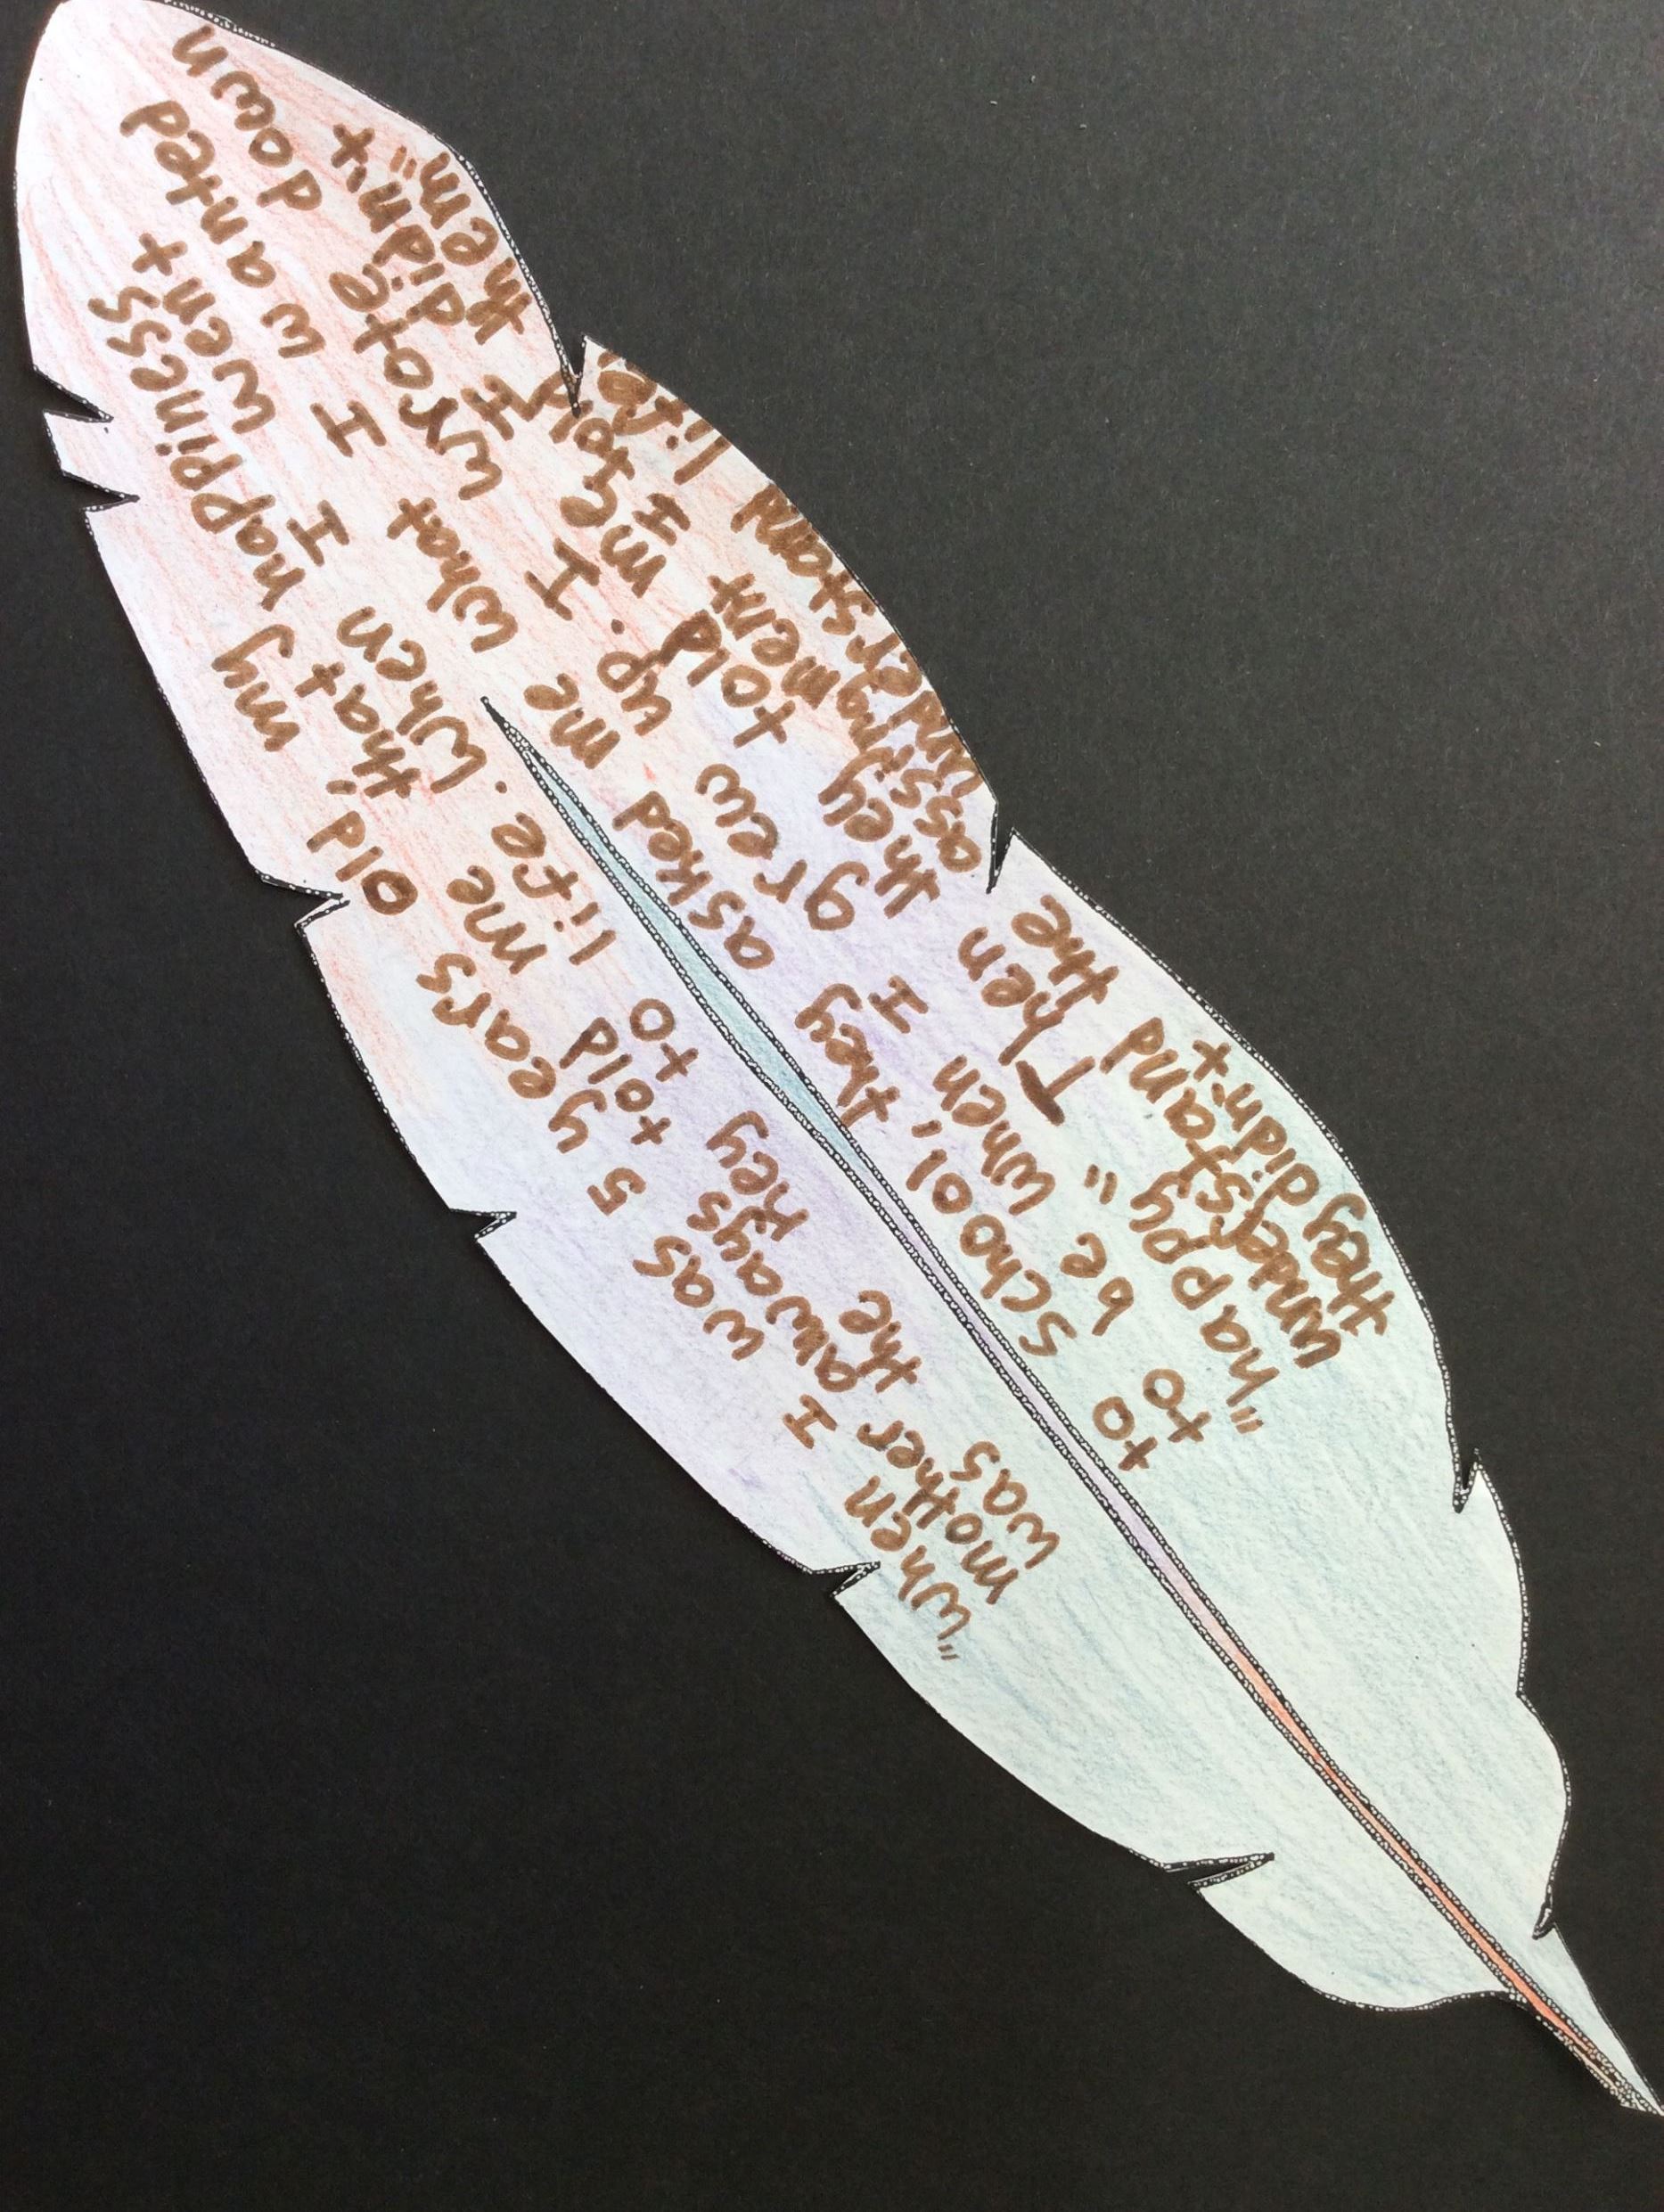 "When I was 5 years old, my
mother always told me that happiness
was the key to life. When I went
to school, they asked me what I wanted
to be when I grew up. I wrote down
"happy" Then they told me I didn't
understand the assignment I told them"
they didn't understand life